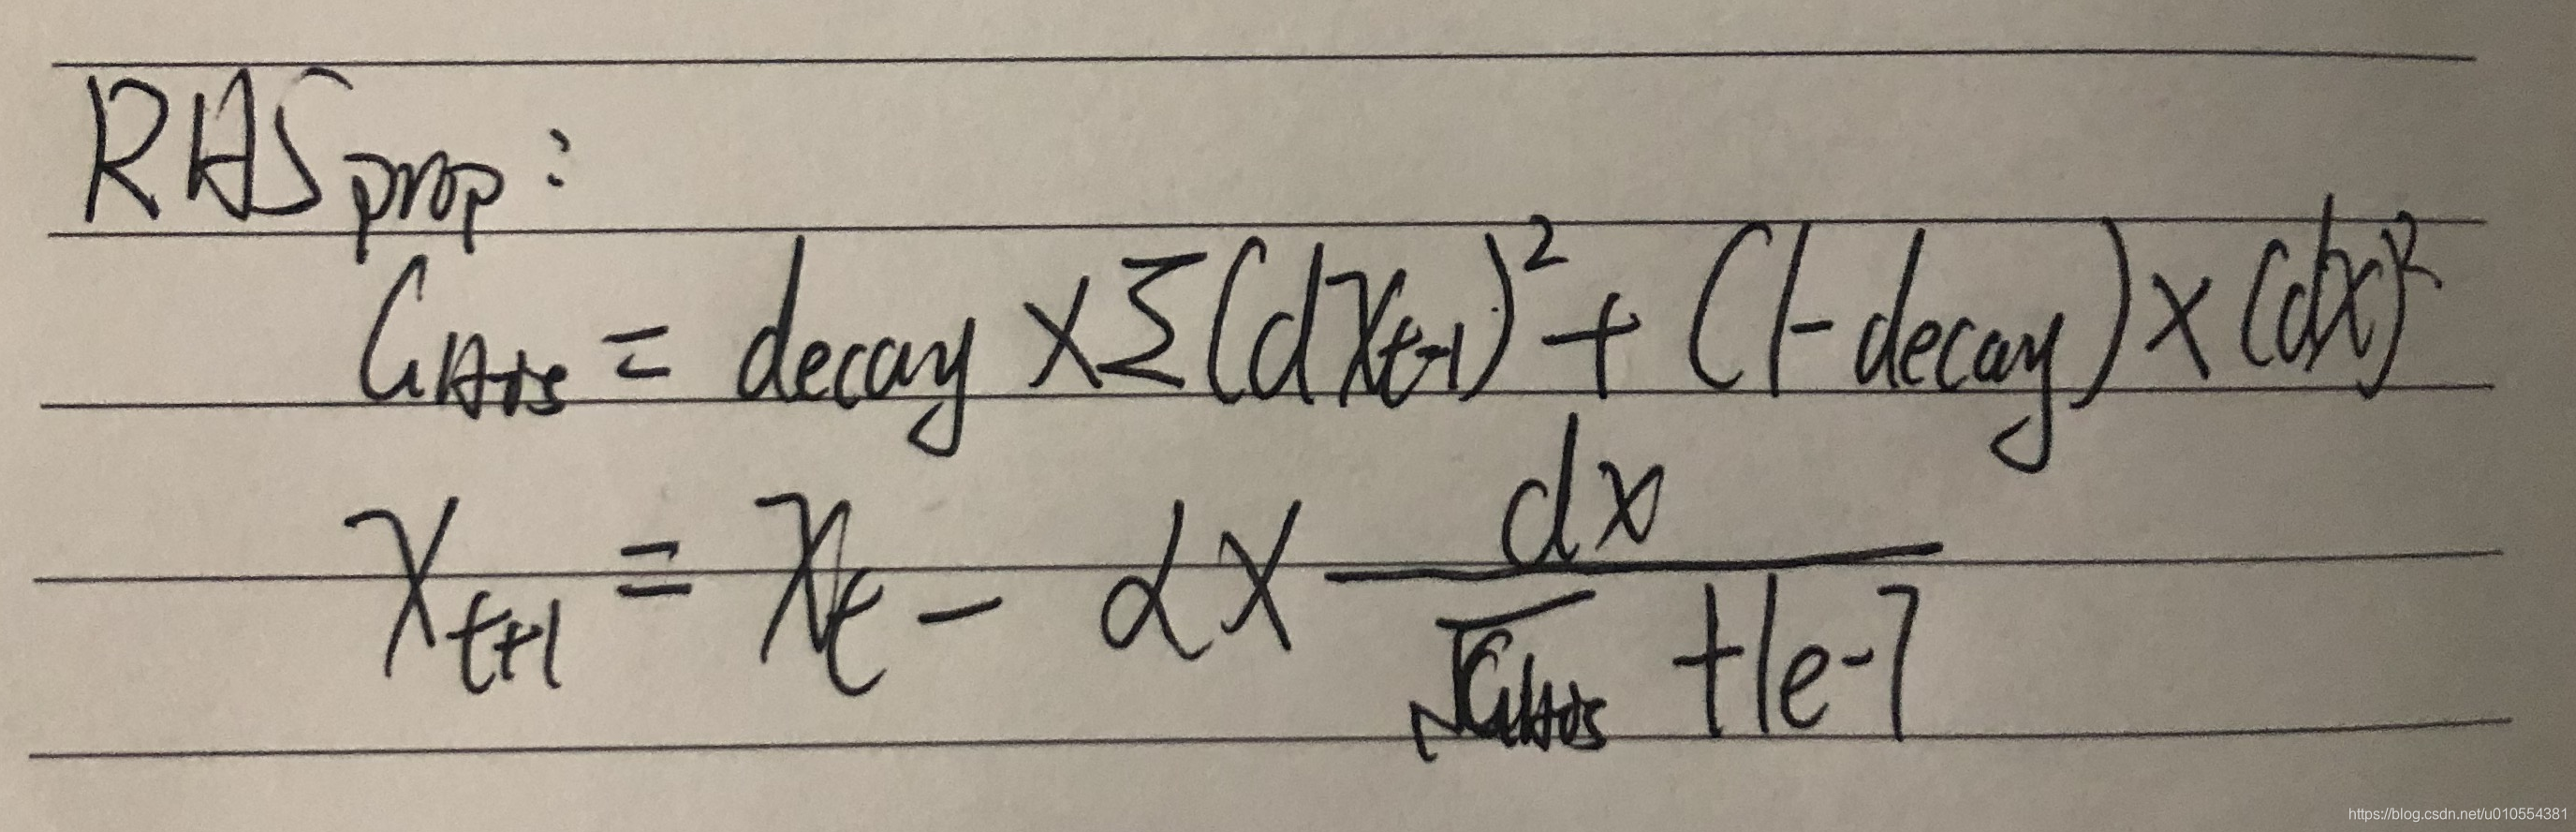 RMSprop:
G = decay × Σ(dx_{t-1})² + (1-decay) × (dx)²
x_{t+1} = x_t - α × dx / (√G + 1e-7)
https://blog.csdn.net/u010554381